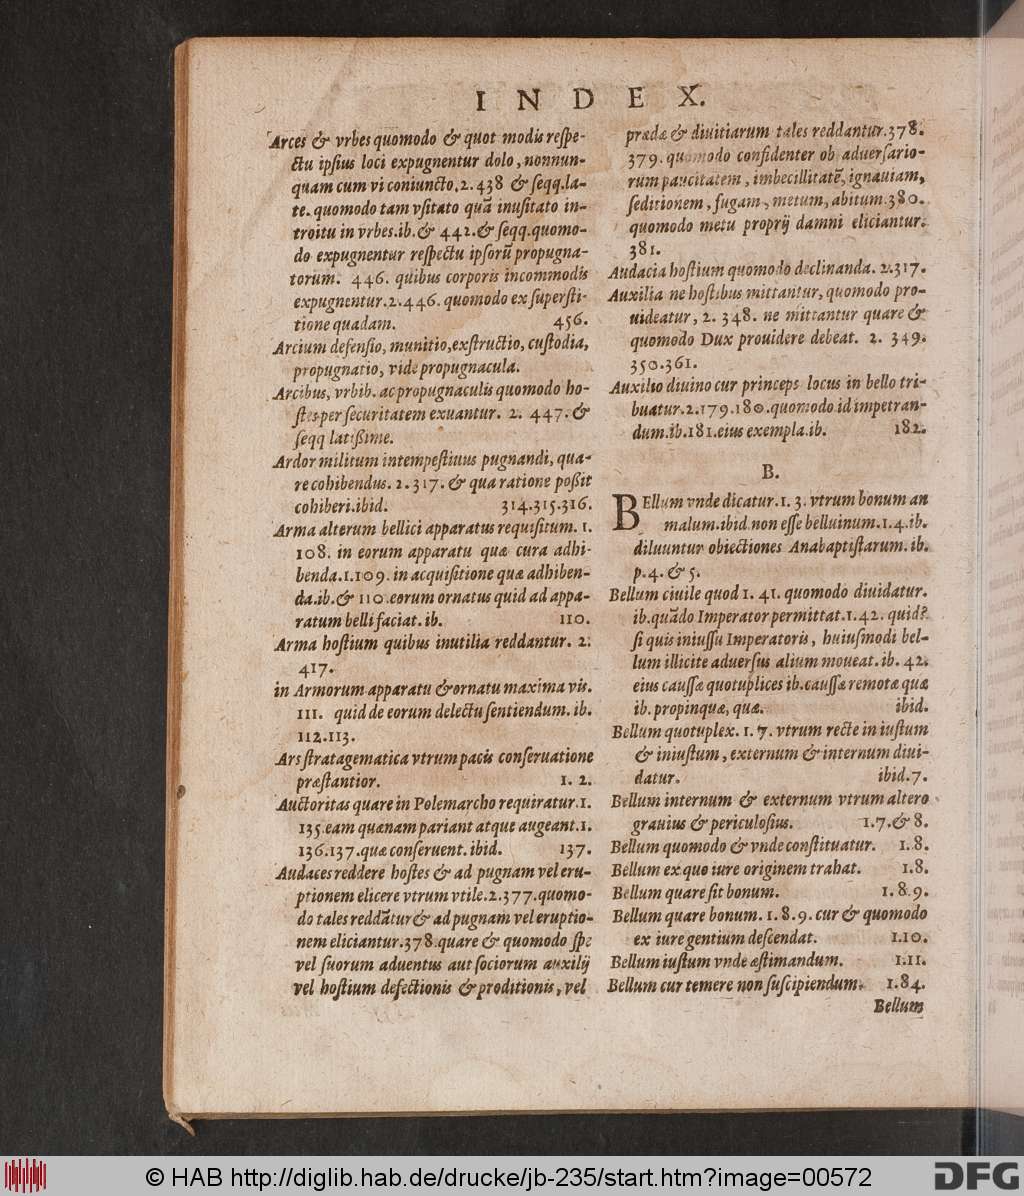 INDEX.
Arces & vrbes quomodo & quot modis respe-
ctu ipsius loci expugnentur dolo, nonnun-
quam cum vi coniuncto. 2. 438 & seqq. la-
te. quomodo tam vsitato quā inusitato in-
troitu in vrbes. ib. & 442. & seqq. quomo-
do expugnentur respectu ipsorū propugna-
torum. 446. quibus corporis incommodis
expugnentur. 2. 446. quomodo ex supersti-
tione quadam. 456.
Arcium defensio, munitio, exstructio, custodia,
propugnatio, vide propugnacula.
Arcibus, vrbib. ac propugnaculis quomodo ho-
stes per securitatem exuantur. 2. 447. &
seqq latißime.
Ardor militum intempestiuus pugnandi, qua-
re cohibendus. 2. 317. & qua ratione poßit
cohiberi. ibid. 314. 315. 316.
Arma alterum bellici apparatus requisitum. 1.
108. in eorum apparatu quæ cura adhi-
benda. 1. 109. in acquisitione quæ adhiben-
da. ib. & 110. eorum ornatus quid ad appa-
ratum belli faciat. ib. 110.
Arma hostium quibus inutilia reddantur. 2.
417.
in Armorum apparatu & ornatu maxima vis.
111. quid de eorum delectu sentiendum. ib.
112. 113.
Ars stratagematica vtrum pacis conseruatione
præstantior. 1. 2.
Auctoritas quare in Polemarcho requiratur. 1.
135. eam quænam pariant atque augeant. 1.
136. 137. quæ conseruent. ibid. 137.
Audaces reddere hostes & ad pugnam vel eru-
ptionem elicere vtrum vtile. 2. 377. quomo-
do tales reddātur & ad pugnam vel eruptio-
nem eliciantur. 378. quare & quomodo spe
vel suorum aduentus aut sociorum auxilij
vel hostium defectionis & proditionis, vel
prædæ & diuitiarum tales reddantur. 378.
379. quomodo confidenter ob aduersario-
rum paucitatem, imbecillitatē, ignauiam,
seditionem, fugam, metum, abitum. 380.
quomodo metu proprij damni eliciantur.
381.
Audacia hostium quomodo declinanda. 2. 317.
Auxilia ne hostibus mittantur, quomodo pro-
uideatur, 2. 348. ne mittantur quare &
quomodo Dux prouidere debeat. 2. 349.
350. 361.
Auxilio diuino cur princeps locus in bello tri-
buatur. 2. 179. 180. quomodo id impetran-
dum. ib. 181. eius exempla. ib. 182.
B.
BEllum vnde dicatur. 1. 3. vtrum bonum an
malum. ibid. non esse belluinum. 1. 4. ib.
diluuntur obiectiones Anabaptistarum. ib.
p. 4. & 5.
Bellum ciuile quod 1. 41. quomodo diuidatur.
ib. quādo Imperator permittat. 1. 42. quid?
si quis iniussu Imperatoris, huiusmodi bel-
lum illicite aduersus alium moueat. ib. 42.
eius caussæ quotuplices ib. caussæ remotæ quæ
ib. propinquæ, quæ. ibid.
Bellum quotuplex. 1. 7. vtrum recte in iustum
& iniustum, externum & internum diui-
datur. ibid. 7.
Bellum internum & externum vtrum altero
grauius & periculosius. 1. 7. & 8.
Bellum quomodo & vnde constituatur. 1. 8.
Bellum ex quo iure originem trahat. 1. 8.
Bellum quare sit bonum. 1. 8. 9.
Bellum quare bonum. 1. 8. 9. cur & quomodo
ex iure gentium descendat. 1. 10.
Bellum iustum vnde æstimandum. 1. 11.
Bellum cur temere non suscipiendum. 1. 84.
Bellum
© HAB http://diglib.hab.de/drucke/jb-235/start.htm?image=00572
DFG